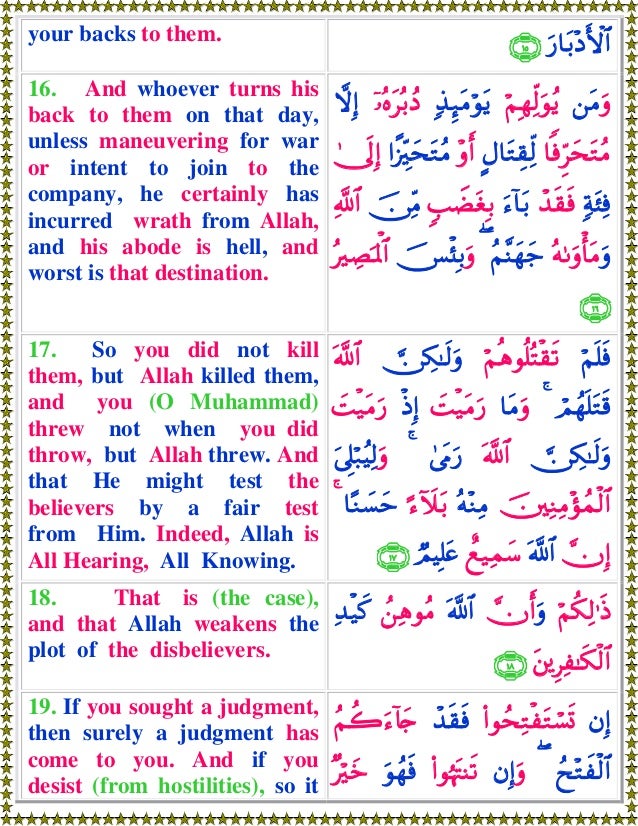 your backs to them.
ٱلۡأَدۡبَارَ ١٥
16. And whoever turns his
back to them on that day,
unless maneuvering for war
or intent to join to the
company, he certainly has
incurred wrath from Allah,
and his abode is hell, and
worst is that destination.
وَمَن يُوَلِّهِمۡ يَوۡمَئِذٖ دُبُرَهُۥٓ إِلَّا
مُتَحَرِّفٗا لِّقِتَالٍ أَوۡ مُتَحَيِّزًا إِلَىٰ
فِئَةٖ فَقَدۡ بَآءَ بِغَضَبٖ مِّنَ ٱللَّهِ
وَمَأۡوَىٰهُ جَهَنَّمُۖ وَبِئۡسَ ٱلۡمَصِيرُ
١٦
17. So you did not kill
them, but Allah killed them,
and you (O Muhammad)
threw not when you did
throw, but Allah threw. And
that He might test the
believers by a fair test
from Him. Indeed, Allah is
All Hearing, All Knowing.
فَلَمۡ تَقۡتُلُوهُمۡ وَلَٰكِنَّ ٱللَّهَ
قَتَلَهُمۡۚ وَمَا رَمَيۡتَ إِذۡ رَمَيۡتَ
وَلَٰكِنَّ ٱللَّهَ رَمَىٰۚ وَلِيُبۡلِيَ
ٱلۡمُؤۡمِنِينَ مِنۡهُ بَلَآءً حَسَنًاۚ
إِنَّ ٱللَّهَ سَمِيعٌ عَلِيمٞ ١٧
18. That is (the case),
and that Allah weakens the
plot of the disbelievers.
ذَٰلِكُمۡ وَأَنَّ ٱللَّهَ مُوهِنُ كَيۡدِ
ٱلۡكَٰفِرِينَ ١٨
19. If you sought a judgment,
then surely a judgment has
come to you. And if you
desist (from hostilities), so it
إِن تَسۡتَفۡتِحُواْ فَقَدۡ جَآءَكُمُ
ٱلۡفَتۡحُۖ وَإِن تَنتَهُواْ فَهُوَ خَيۡرٞ